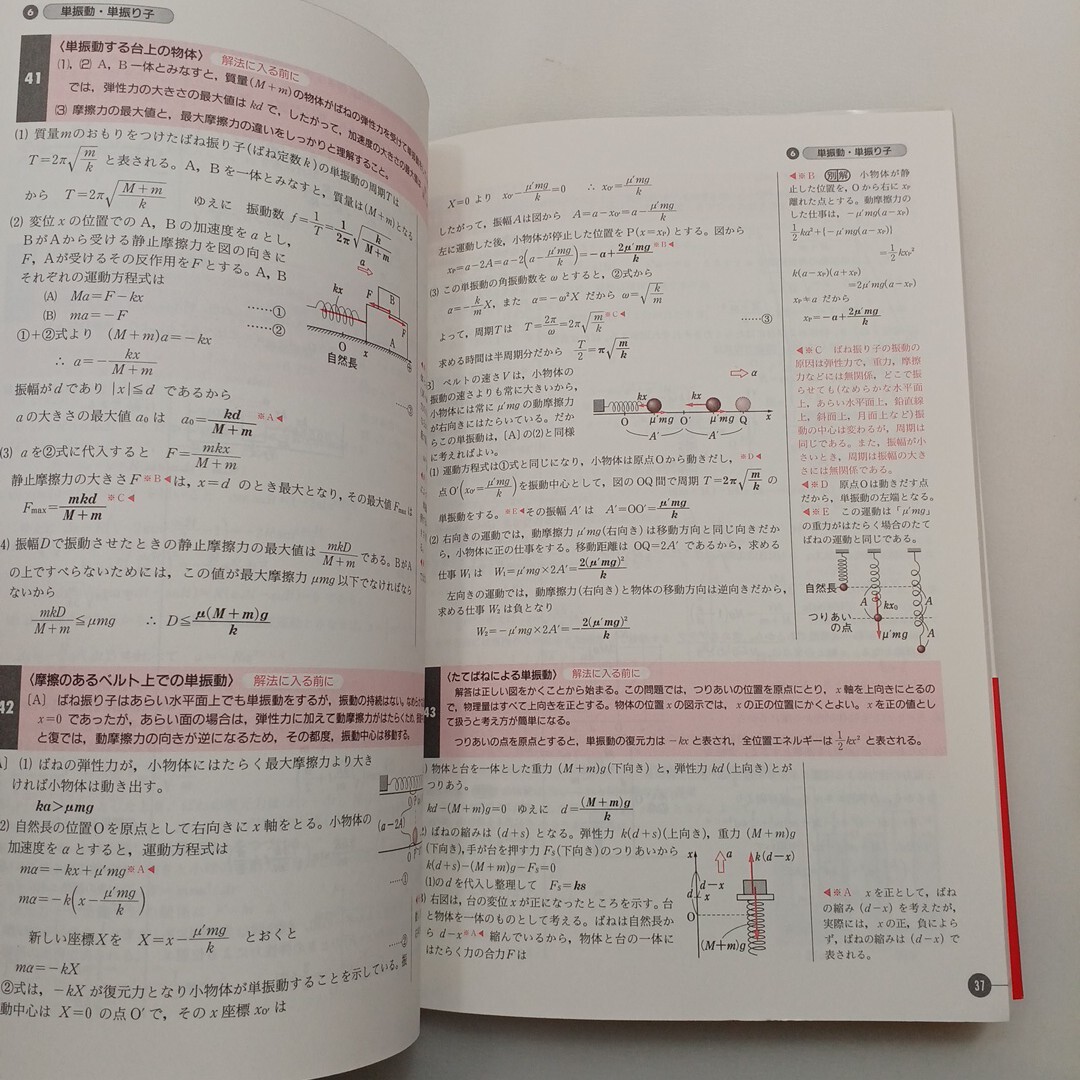 ❻ 単振動・単振り子
41
〈単振動する台上の物体〉 解法に入る前に
(1), (2) A, B 一体とみなすと, 質量(M+m)の物体がばねの弾性力を受けて
では, 弾性力の大きさの最大値は kd で, したがって, 加速度の大きさの最大値は
(3) 摩擦力の最大値と, 最大摩擦力の違いをしっかりと理解すること。
(1) 質量mのおもりをつけたばね振り子(ばね定数k)の単振動の周期Tは
T=2π√(m/k) と表される。A, Bを一体とみなすと, 質量は(M+m)となる
から T=2π√((M+m)/k) ゆえに 振動数 f=1/T=(1/2π)√(k/(M+m))
(2) 変位xの位置での A, Bの加速度をaとし,
BがAから受ける静止摩擦力を図の向きに
F, Aが受けるその反作用をFとする。A, B
それぞれの運動方程式は
(A) Ma=F−kx ……①
(B) ma=−F ……②
①+②式より (M+m)a=−kx
∴ a=−kx/(M+m) ……③
振幅がdであり |x|≦d であるから
aの大きさの最大値 a₀は a₀=kd/(M+m) ※A◀
(3) aを②式に代入すると F=mkx/(M+m)
静止摩擦力の大きさF※B◀は, x=d のとき最大となり, その最大値 Fmaxは
Fmax=mkd/(M+m) ※C◀
4) 振幅Dで振動させたときの静止摩擦力の最大値は mkD/(M+m) である。BがA
の上ですべらないためには, この値が最大摩擦力 μmg 以下でなければなら
ないから
mkD/(M+m)≦μmg ∴ D≦μ(M+m)g/k
a
kx
F
B
F
A
O
x
自然長
42
〈摩擦のあるベルト上での単振動〉 解法に入る前に
[A] ばね振り子はあらい水平面上でも単振動をするが, 振動の持続はない。
x=0 であったが, あらい面の場合は, 弾性力に加えて動摩擦力がはたらくため,
と復では, 動摩擦力の向きが逆になるため, その都度, 振動中心は移動する。
A] (1) ばねの弾性力が, 小物体にはたらく最大摩擦力より大き
ければ小物体は動き出す。
ka>μmg
2) 自然長の位置Oを原点として右向きに x 軸をとる。小物体の
加速度を α とすると, 運動方程式は
mα=−kx+μ′mg※A◀ ……①
mα=−k(x−μ′mg/k)
新しい座標Xを X=x−μ′mg/k とおくと
mα=−kX ……②
②式は, −kX が復元力となり小物体が単振動することを示している。振
動中心は X=0 の点O′で, その x 座標 xO′ は
(a−2A)
❻ 単振動・単振り子
X=0 より xO′−μ′mg/k=0 ∴ xO′=μ′mg/k
したがって, 振幅Aは図から A=a−xO′=a−μ′mg/k
左に運動した後, 小物体が停止した位置を P(x=xP)とする。図から
xP=a−2A=a−2(a−μ′mg/k)=−a+2μ′mg/k ※B◀
(3) この単振動の角振動数を ω とすると, ②式から
α=−(k/m)X, また α=−ω²X だから ω=√(k/m) ……③
よって, 周期Tは T=2π/ω=2π√(m/k) ※C◀
求める時間は半周期分だから T/2=π√(m/k)
B] ベルトの速さVは, 小物体の
振動の速さよりも常に大きいから,
小物体には常に μ′mg の動摩擦力
が右向きにはたらいている。だか
らこの単振動は, [A]の(2)と同様
に考えればよい。
α
kx
kx
μ′mg
μ′mg
O
O′
Q
x
A′
A′
(1) 運動方程式は①式と同じになり, 小物体は原点Oから動きだし, ※D◀
点 O′(xO′=μ′mg/k)を振動中心として, 図のOQ間で周期 T=2π√(m/k) の
単振動をする。※E◀その振幅 A′ は A′=OO′=μ′mg/k
(2) 右向きの運動では, 動摩擦力 μ′mg(右向き)は移動方向と同じ向きだか
ら, 小物体に正の仕事をする。移動距離は OQ=2A′ であるから, 求める
仕事W₁は W₁=μ′mg×2A′=2(μ′mg)²/k
左向きの運動では, 動摩擦力(右向き)と物体の移動方向は逆向きだから,
求める仕事 W₂ は負となり
W₂=−μ′mg×2A′=−2(μ′mg)²/k
◀※B 別解 小物体が静
止した位置を, Oから右に xP
離れた点とする。動摩擦力の
した仕事は, −μ′mg(a−xP)
½ka²+{−μ′mg(a−xP)}
=½kxP²
k(a−xP)(a+xP)
=2μ′mg(a−xP)
xP≠a だから
xP=−a+2μ′mg/k
◀※C ばね振り子の振動の
原因は弾性力で, 重力, 摩擦
力などには無関係, どこで振
らせても(なめらかな水平面
上, あらい水平面上, 鉛直線
上, 斜面上, 月面上など)振
動の中心は変わるが, 周期は
同じである。また, 振幅が小
さいとき, 周期は振幅の大き
さには無関係である。
◀※D 原点Oは動きだす点
だから, 単振動の左端となる。
◀※E この運動は「μ′mg」
の重力がはたらく場合のたて
ばねの運動と同じである。
自然長
A
kx₀
つりあい
の点
μ′mg
A
43
〈たてばねによる単振動〉 解法に入る前に
解答は正しい図をかくことから始まる。この問題では, つりあいの位置を原点にとり, x 軸を上向きにとるの
で, 物理量はすべて上向きを正とする。物体の位置 x の図示では, x の正の位置にかくとよい。x を正の値とし
て扱うと考え方が簡単になる。
つりあいの点を原点とすると, 単振動の復元力は −kx と表され, 全位置エネルギーは ½kx² と表される。
) 物体と台を一体とした重力 (M+m)g(下向き) と, 弾性力 kd(上向き)とが
つりあう。
kd−(M+m)g=0 ゆえに d=(M+m)g/k
2) ばねの縮みは (d+s) となる。弾性力 k(d+s)(上向き), 重力 (M+m)g
(下向き), 手が台を押す力 Fs(下向き)のつりあいから
k(d+s)−(M+m)g−Fs=0
(1)のdを代入し整理して Fs=ks
) 右図は, 台の変位 x が正になったところを示す。台
と物体を一体のものとして考える。ばねは自然長か
ら d−x※A◀ 縮んでいるから, 物体と台の一体に
はたらく力の合力Fは
x
a
k(d−x)
d−x
d
x
O
(M+m)g
◀※A xを正として, ばね
の縮み (d−x) を考えたが,
実際には, xの正, 負によら
ず, ばねの縮みは (d−x) で
表される。
37